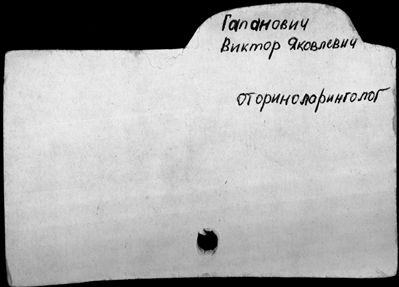 Гапанович
Виктор Яковлевич
оториноларинголог